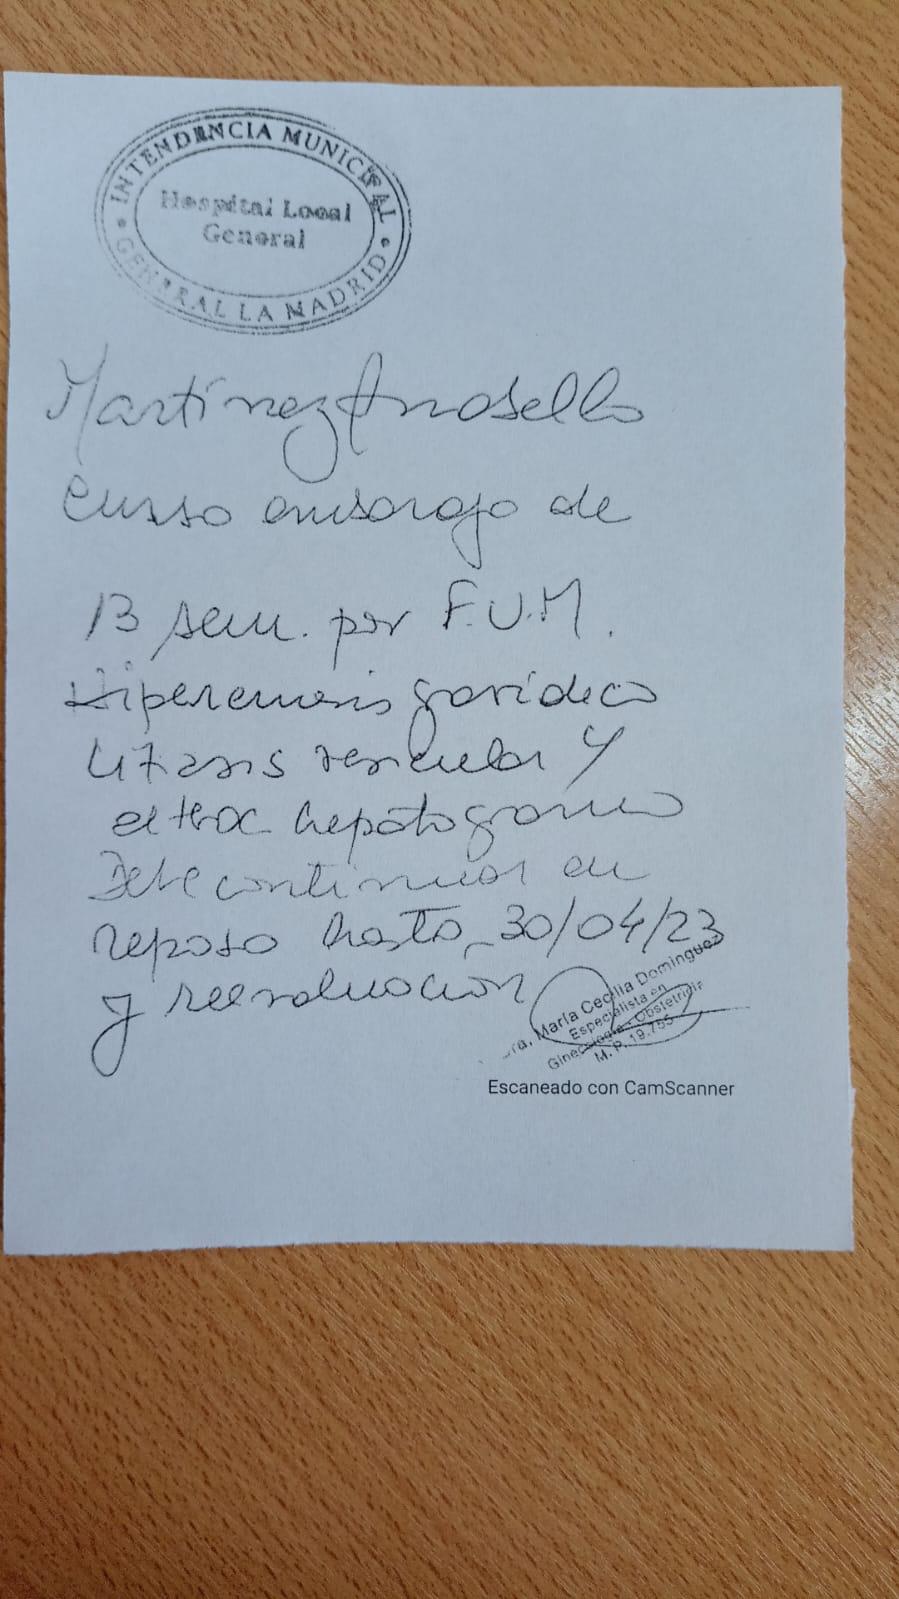 INTENDENCIA MUNICIPAL
Hospital Local
General
GENERAL LA MADRID
Martínez
Curso embarazo de
13 sem. por F.U.M.
Hiperemesis gravídica
Litiasis vesicular y
hepatograma
Debe continuar en
reposo hasta 30/04/23
y reevaluación
Dra. María Cecilia Dominguez
Especialista en
Ginecología - Obstetricia
M. P. 19.755
Escaneado con CamScanner